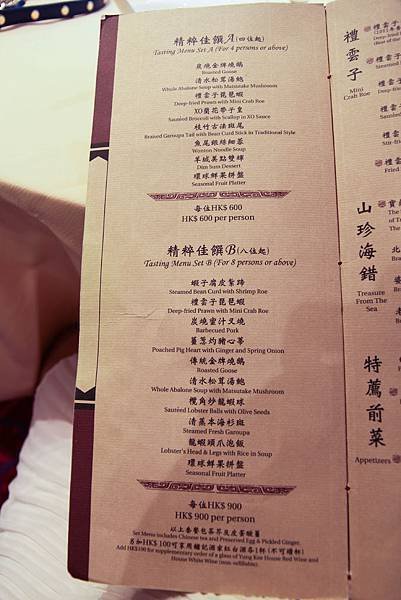 精粹佳饌A(四位起)
Tasting Menu Set A (For 4 persons or above)
炭燒金牌燒鵝
Roasted Goose
清水松茸湯鮑
Whole Abalone Soup with Matsutake Mushroom
禮雲子琵琶蝦
Deep-fried Prawn with Mini Crab Roe
XO蘭花帶子皇
Sautéed Broccoli with Scallop in XO Sauce
枝竹古法斑尾
Braized Garoupa Tail with Bean Curd Stick in Traditional Style
魚尾銀絲細蓉
Wonton Noodle Soup
羊城美點雙輝
Dim Sum Dessert
環球鮮果拼盤
Seasonal Fruit Platter
每位HK$ 600
HK$ 600 per person
精粹佳饌B(八位起)
Tasting Menu Set B (For 8 persons or above)
蝦子腐皮紮蹄
Steamed Bean Curd with Shrimp Roe
禮雲子琵琶蝦
Deep-fried Prawn with Mini Crab Roe
炭燒蜜汁叉燒
Barbecued Pork
薑蔥灼豬心蒂
Poached Pig Heart with Ginger and Spring Onion
傳統金牌燒鵝
Roasted Goose
清水松茸湯鮑
Whole Abalone Soup with Matsutake Mushroom
欖角炒龍蝦球
Sautéed Lobster Balls with Olive Seeds
清蒸本海杉斑
Steamed Fresh Garoupa
龍蝦頭爪泡飯
Lobster's Head & Legs with Rice in Soup
環球鮮果拼盤
Seasonal Fruit Platter
每位HK$ 900
HK$ 900 per person
以上套餐包茶芥及皮蛋酸薑
Set Menu includes Chinese tea and Preserved Egg & Pickled Ginger.
另加HK$ 100可享用鏞記酒家紅白酒各1杯(不可續杯)
Add HK$100 for supplementary order of a glass of Yung Kee House Red Wine and
House White Wine (non-refillable).
禮雲子
Mini
Crab Roe
禮雲子
Deep-fried
禮雲子
Steamed
禮雲子
Stir-fried
禮雲
Fried
山珍海錯
Treasure
From The
Sea
The
of T
The
北
老
特薦前菜
Appetizers